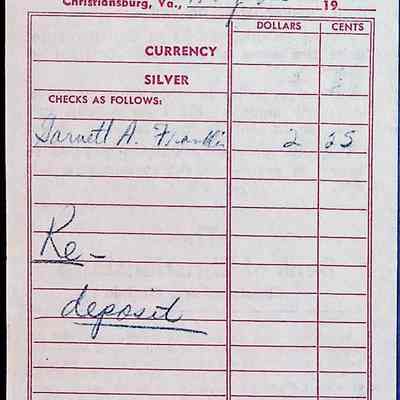 Christiansburg, Va., 19
DOLLARS CENTS
CURRENCY
SILVER
CHECKS AS FOLLOWS:
Garnett A. Franklin 2 25
Re-
deposit